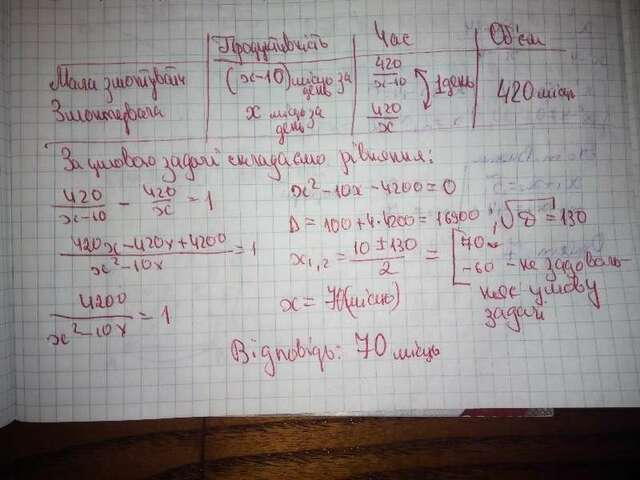 Продуктивність Час Об'єм
Мала змонтувати (x-10) місць за день 420/x-10 1 день 420 місць
Змонтувала x місць за день 420/x
За умовою задачі складаємо рівняння:
420/x-10 - 420/x = 1
420x-420x+4200/x²-10x = 1
4200/x²-10x = 1
x²-10x-4200=0
D = 100+4·4200=16900; √D=130
x₁,₂ = 10±130/2 = [70
-60 - не задоволь-
няє умову
задачі
x = 70(місць)
Відповідь: 70 місць